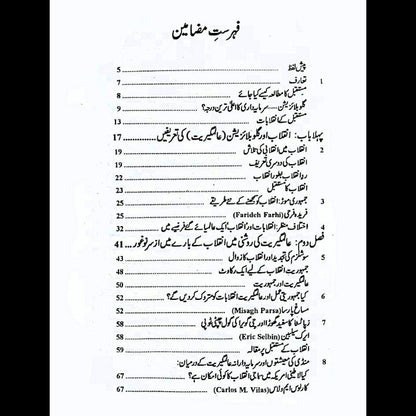 فہرستِ مضامین
پیش لفظ 5
1 تعارف 7
مستقبل کا مطالعہ کیسے کیا جائے 8
گلوبلائزیشن — سرمایہ داری کا اعلیٰ ترین درجہ؟ 9
مستقبل کے انقلابات 13
پہلا باب: انقلاب اور گلوبلائزیشن (عالمگیریت) کی تعریفیں 17
2 انقلاب میں انقلابی کی تلاش 19
انقلاب کی دوسری تعریف 19
ردِ انقلاب بطور انقلاب 22
انقلاب کا مستقبل 23
3 جمہوری موڑ: انقلاب کو سمجھنے کے نئے طریقے 25
فریدہ فرحی (Farideh Farhi) 25
4 اختلافِ منظر: انقلابات اور انقلاب ایک عالمیائے گئے فریم میں 32
فصل دوم: عالمگیریت کی روشنی میں انقلاب کے بارے میں از سرِ نو غور 41
5 سوشلزم کی تجدید اور انقلاب کا زوال 43
جمہوریت انقلاب کے لیے ایک رکاوٹ 48
عالمگیریت اور جمہوریت 50
6 کیا جمہوریتی عمل اور عالمگیریت انقلابات کو متروک کر دیں گے؟ 52
مساغ پارسا (Misagh Parsa) 52
7 زپاٹسٹا کا سفید گھوڑا اور چی گویرا کی گول چپٹی ٹوپی 58
ایرک سیلبین (Eric Selbin) 58
انقلاب کے مستقبل پر مقالہ 59
8 منڈی کی معیشتوں اور سرمایہ دارانہ عالمگیریت کے درمیان:
کیا لاطینی امریکہ میں سماجی انقلاب کا کوئی امکان ہے؟ 67
کارلوس ایم ولاس (Carlos M. Vilas) 67